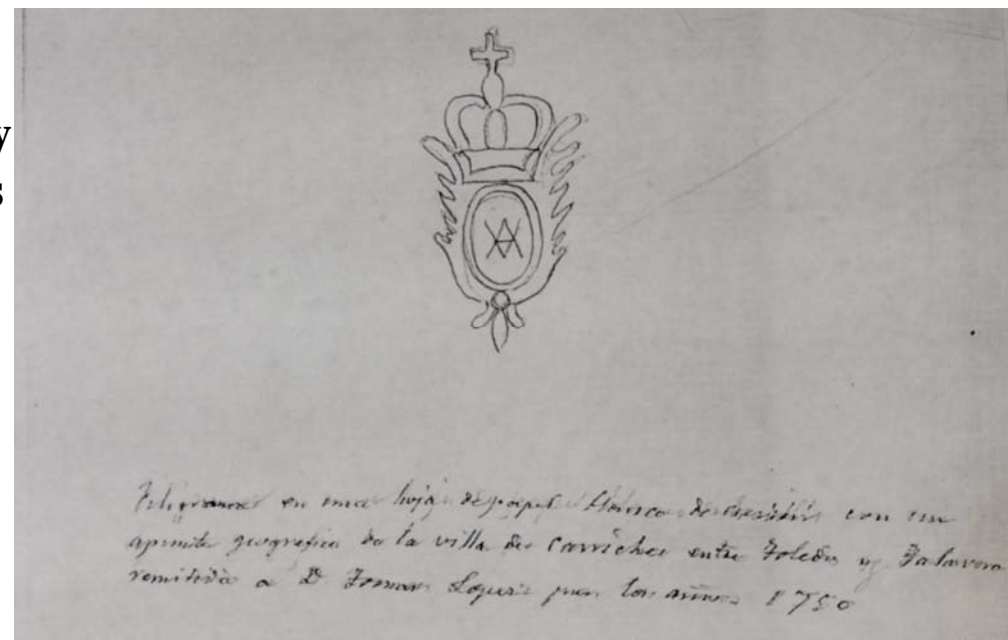 y
s
Filigrana en una hoja de papel blanco de escribir con un
apunte geografico de la villa de Carriches entre Toledo y Talavera
remitida a D Tomas Lopez por los años 1750